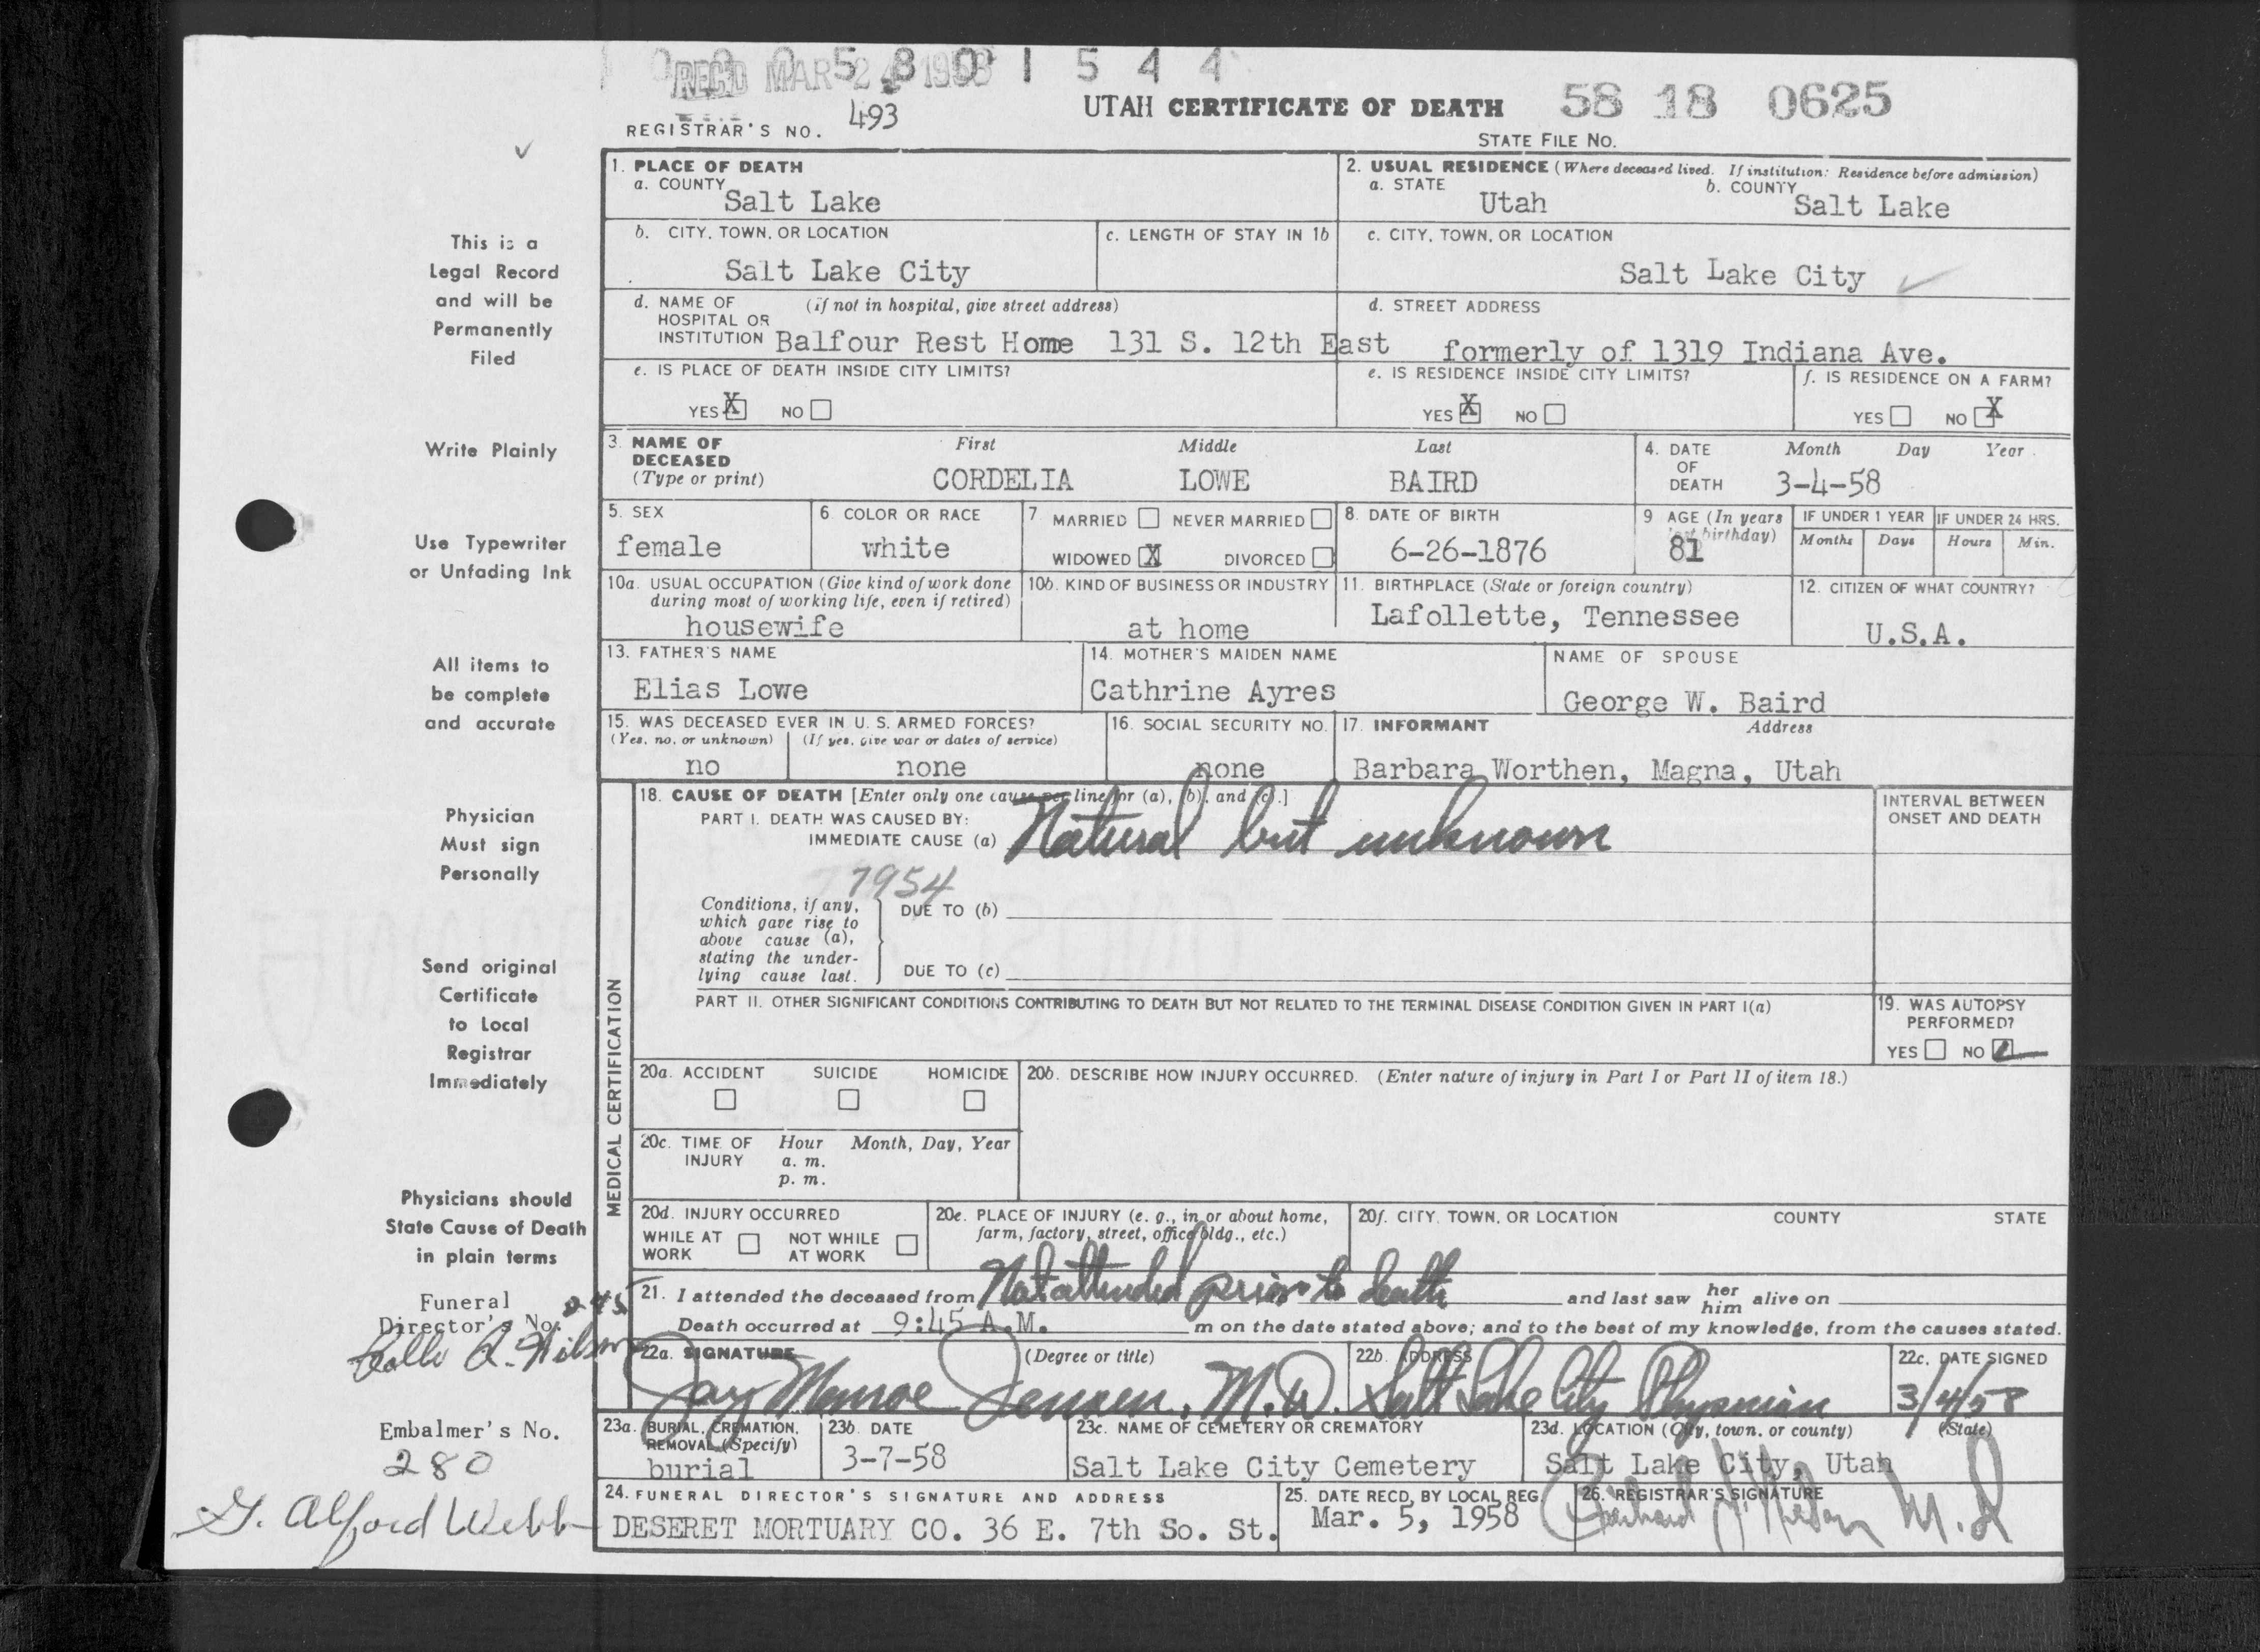 REC'D MAR 24 1958
5 8 0 1 5 4 4
REGISTRAR'S NO. 493
UTAH CERTIFICATE OF DEATH 58 18 0625
STATE FILE No.
This is a
Legal Record
and will be
Permanently
Filed
Write Plainly
Use Typewriter
or Unfading Ink
All items to
be complete
and accurate
Physician
Must sign
Personally
Send original
Certificate
to Local
Registrar
Immediately
Physicians should
State Cause of Death
in plain terms
Funeral
Director's No. 245
A. Wilson
Embalmer's No.
280
G. Alford Webb
1. PLACE OF DEATH
a. COUNTY
Salt Lake
2. USUAL RESIDENCE (Where deceased lived. If institution: Residence before admission)
a. STATE b. COUNTY
Utah Salt Lake
b. CITY, TOWN, OR LOCATION c. LENGTH OF STAY IN 1b
Salt Lake City
c. CITY, TOWN, OR LOCATION
Salt Lake City
d. NAME OF (if not in hospital, give street address)
HOSPITAL OR
INSTITUTION Balfour Rest Home 131 S. 12th East
d. STREET ADDRESS
formerly of 1319 Indiana Ave.
e. IS PLACE OF DEATH INSIDE CITY LIMITS?
YES X NO
e. IS RESIDENCE INSIDE CITY LIMITS?
YES X NO
f. IS RESIDENCE ON A FARM?
YES NO X
3. NAME OF DECEASED (Type or print)
First Middle Last
CORDELIA LOWE BAIRD
4. DATE OF DEATH
Month Day Year
3-4-58
5. SEX
female
6. COLOR OR RACE
white
7. MARRIED NEVER MARRIED
WIDOWED X DIVORCED
8. DATE OF BIRTH
6-26-1876
9 AGE (In years
last birthday)
81
IF UNDER 1 YEAR IF UNDER 24 HRS.
Months Days Hours Min.
10a. USUAL OCCUPATION (Give kind of work done
during most of working life, even if retired)
housewife
10b. KIND OF BUSINESS OR INDUSTRY
at home
11. BIRTHPLACE (State or foreign country)
Lafollette, Tennessee
12. CITIZEN OF WHAT COUNTRY?
U.S.A.
13. FATHER'S NAME
Elias Lowe
14. MOTHER'S MAIDEN NAME
Cathrine Ayres
NAME OF SPOUSE
George W. Baird
15. WAS DECEASED EVER IN U. S. ARMED FORCES?
(Yes, no, or unknown) (If yes, give war or dates of service)
no none
16. SOCIAL SECURITY NO.
none
17. INFORMANT Address
Barbara Worthen, Magna, Utah
MEDICAL CERTIFICATION
18. CAUSE OF DEATH [Enter only one cause per line for (a), (b), and (c).]
PART I. DEATH WAS CAUSED BY:
IMMEDIATE CAUSE (a) Natural but unknown
INTERVAL BETWEEN
ONSET AND DEATH
7954
Conditions, if any,
which gave rise to
above cause (a),
stating the under-
lying cause last.
DUE TO (b)
DUE TO (c)
PART II. OTHER SIGNIFICANT CONDITIONS CONTRIBUTING TO DEATH BUT NOT RELATED TO THE TERMINAL DISEASE CONDITION GIVEN IN PART I(a)
19. WAS AUTOPSY
PERFORMED?
YES NO
20a. ACCIDENT SUICIDE HOMICIDE
20b. DESCRIBE HOW INJURY OCCURRED. (Enter nature of injury in Part I or Part II of item 18.)
20c. TIME OF Hour Month, Day, Year
INJURY a. m.
p. m.
20d. INJURY OCCURRED
WHILE AT NOT WHILE
WORK AT WORK
20e. PLACE OF INJURY (e. g., in or about home,
farm, factory, street, office bldg., etc.)
20f. CITY, TOWN, OR LOCATION COUNTY STATE
21. I attended the deceased from Not attended prior to death and last saw her him alive on
Death occurred at 9:45 A.M. m on the date stated above; and to the best of my knowledge, from the causes stated.
22a. SIGNATURE (Degree or title)
Jay Monroe Jensen, M.D.
22b. ADDRESS
Salt Lake City Physician
22c. DATE SIGNED
3/4/58
23a. BURIAL, CREMATION,
REMOVAL (Specify)
burial
23b. DATE
3-7-58
23c. NAME OF CEMETERY OR CREMATORY
Salt Lake City Cemetery
23d. LOCATION (City, town, or county) (State)
Salt Lake City, Utah
24. FUNERAL DIRECTOR'S SIGNATURE AND ADDRESS
DESERET MORTUARY CO. 36 E. 7th So. St.
25. DATE RECD. BY LOCAL REG.
Mar. 5, 1958
26. REGISTRAR'S SIGNATURE
M.D